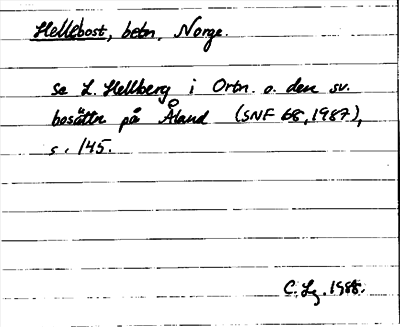 Hellebost, bebn, Norge.
se L. Hellberg i Ortn. o. den sv.
bosättn på Åland (SNF 68, 1987),
s. 145.
C. Lg. 1988.